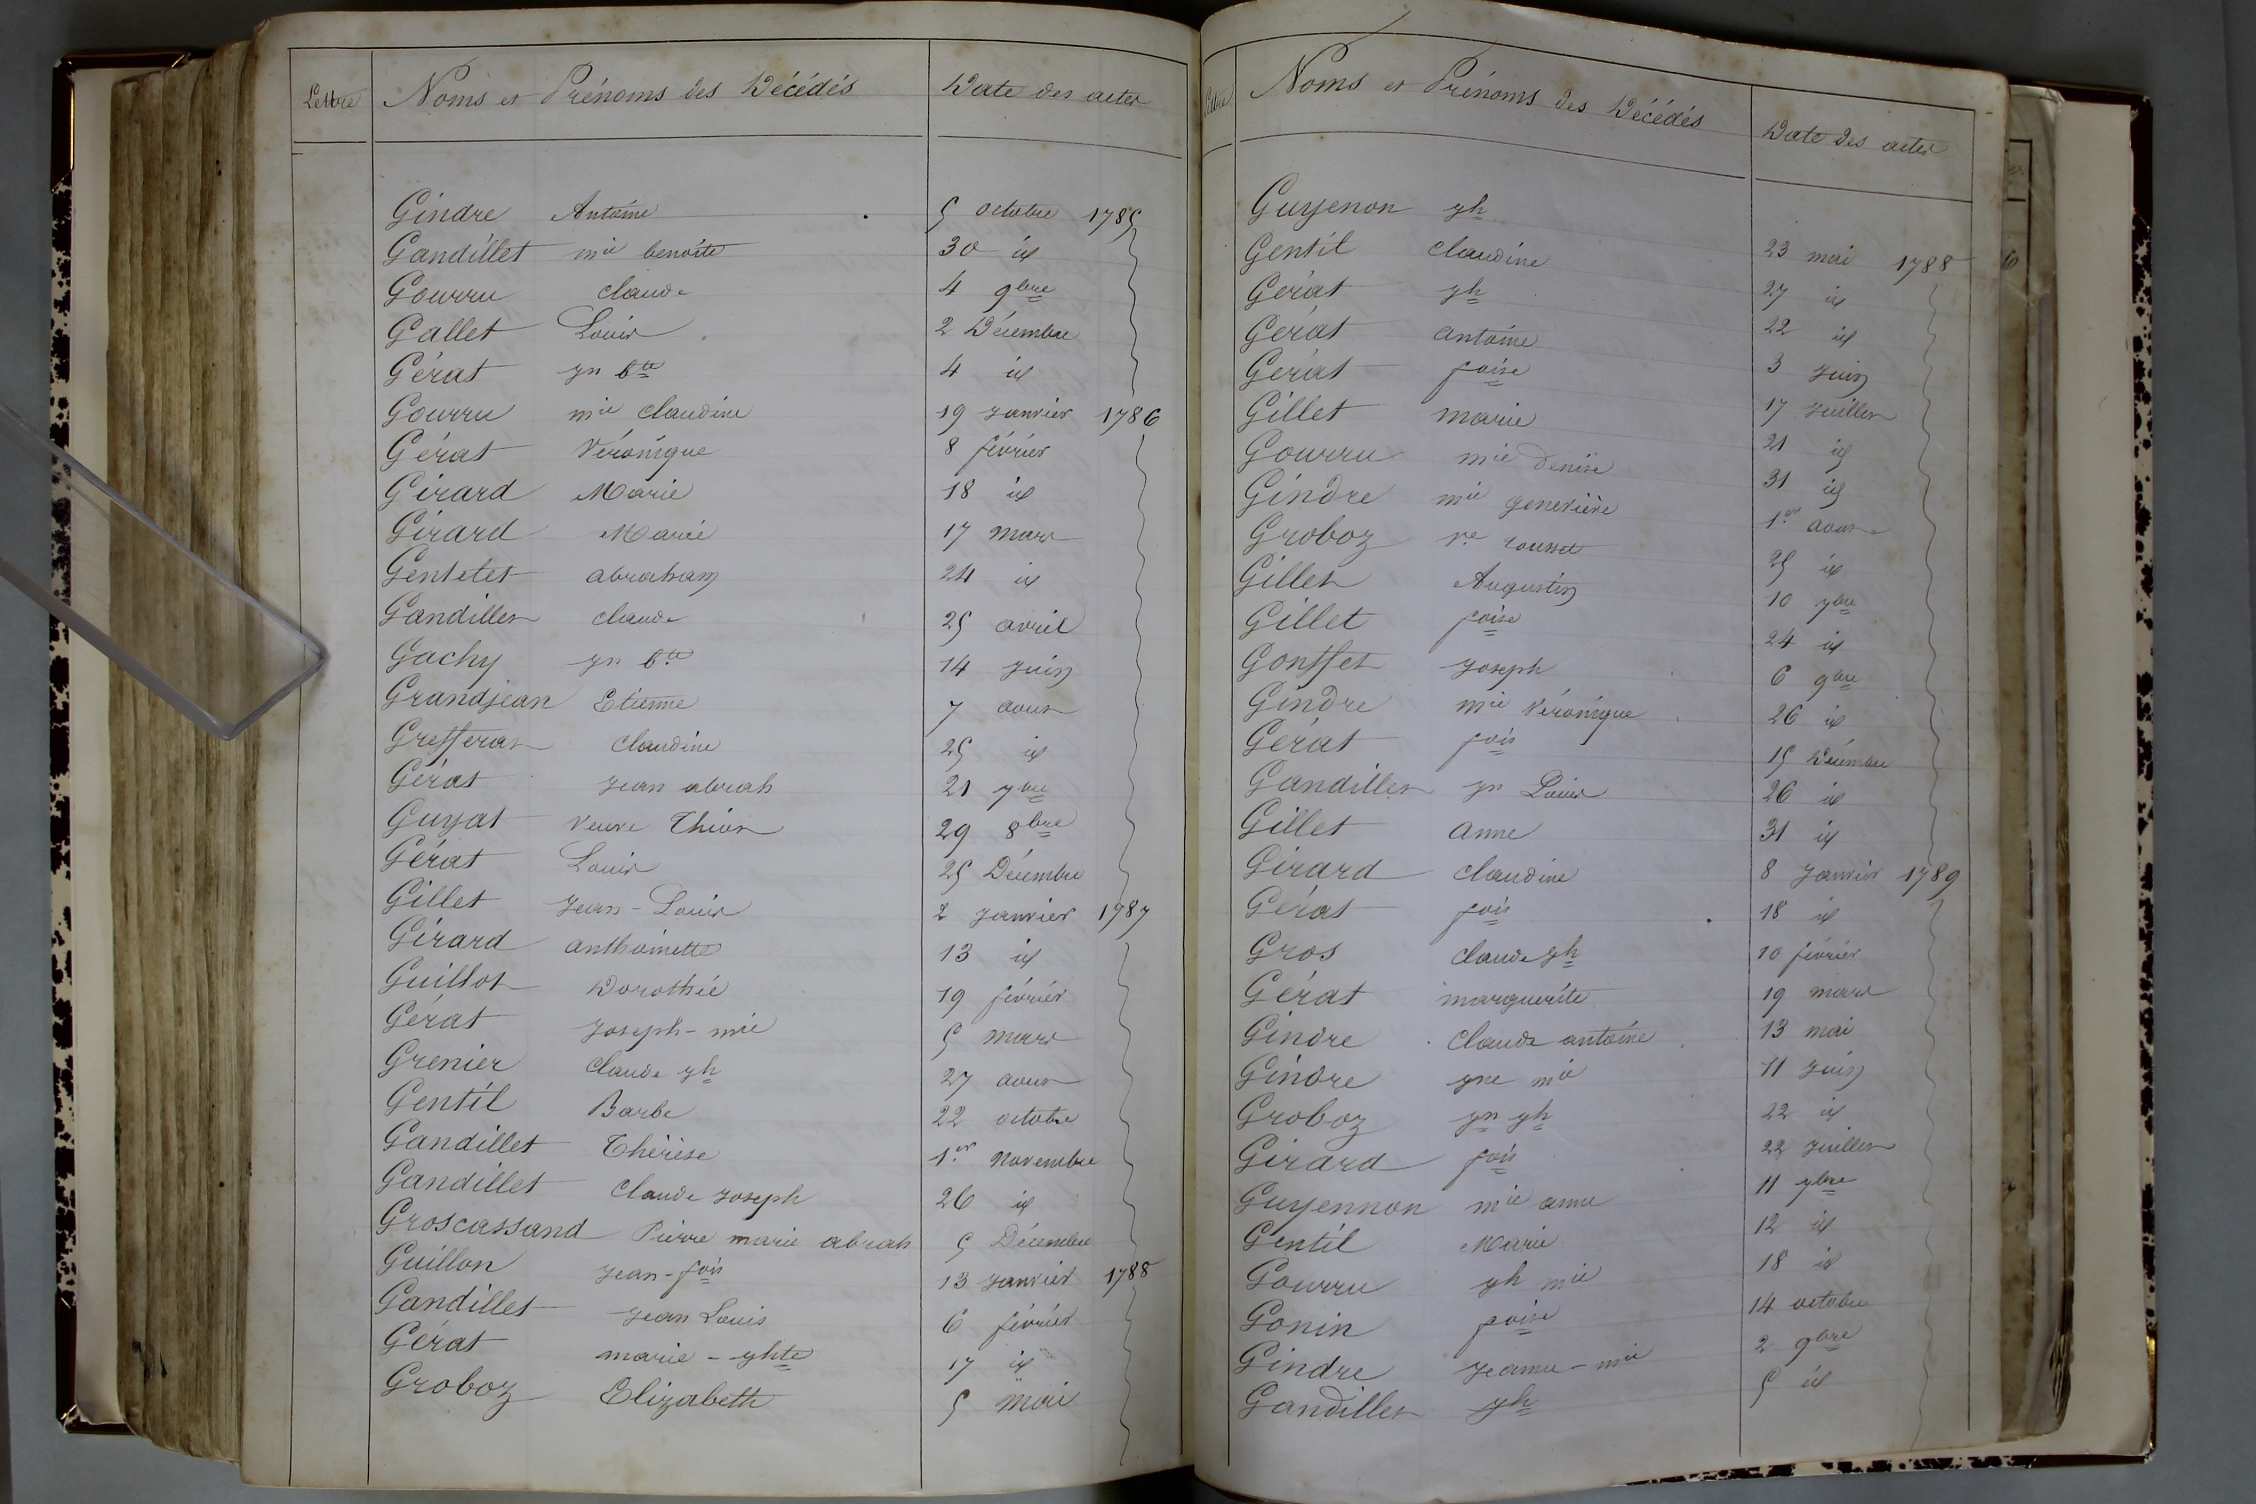 Lettre Noms et Prénoms des Décédés Date des actes
Gindre Antoine 5 octobre 1785
Gandillet mie benoite 30 id
Gourru claude 4 9bre
Gallet Louis 2 Décembre
Gérat jn bte 4 id
Gourru mie claudine 19 janvier 1786
Gérat Véronique 8 février
Girard Marie 18 id
Girard Marie 17 mars
Gentelet abraham 24 id
Gandillet claude 25 avril
Gachy jn bte 14 juin
Grandjean Etienne 7 aout
Grefferat Claudine 25 id
Gérat jean abrah 21 7bre
Guyat veuve Thion 29 8bre
Gérat Louis 25 Décembre
Gillet jean-Louis 2 janvier 1787
Girard anthoinette 13 id
Guillot Dorothée 19 février
Gérat joseph-mie 5 mars
Grenier Claude jh 27 aout
Gentil Barbe 22 octobre
Gandillet Thérèse 1er Novembre
Gandillet Claude joseph 26 id
Groscassand Pierre marie abrah 5 Décembre
Guillon jean-fois 13 janvier 1788
Gandillet jean Louis 6 février
Gérat marie-jhte 17 id
Groboz Elizabeth 5 mai
Lettre Noms et Prénoms des Décédés Date des actes
Guyenon jh
Gentil Claudine 23 mai 1788
Gérat jh 27 id
Gérat antoine 22 id
Gérat foise 3 juin
Gillet marie 17 juillet
Gourru mie Denise 21 id
Gindre mie geneviève 31 id
Groboz ve rousset 1er aout
Gillet Augustin 25 id
Gillet foise 10 7bre
Gontfet joseph 24 id
Gindre mie Véronique 6 9bre
Gérat fois 26 id
Gandillet jn Louis 15 Décembre
Gillet anne 26 id
Girard claudine 31 id
Gérat fois 8 janvier 1789
Gros claude jh 18 id
Gérat marguerite 10 février
Gindre Claude antoine 19 mars
Gindre jne mie 13 mai
Groboz jn jh 11 juin
Girard fois 22 id
Guyennon mie anne 22 juillet
Gentil Marie 11 7bre
Gourru jh mie 12 id
Gonin foise 18 id
Gindre jeanne-mie 14 octobre
Gandillet jh 2 9bre
5 id